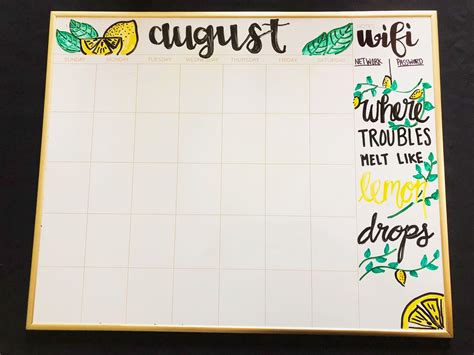 august
wifi
SUNDAY MONDAY TUESDAY WEDNESDAY THURSDAY FRIDAY SATURDAY
NETWORK | PASSWORD
where
TROUBLES
MELT LIKE
lemon
drops